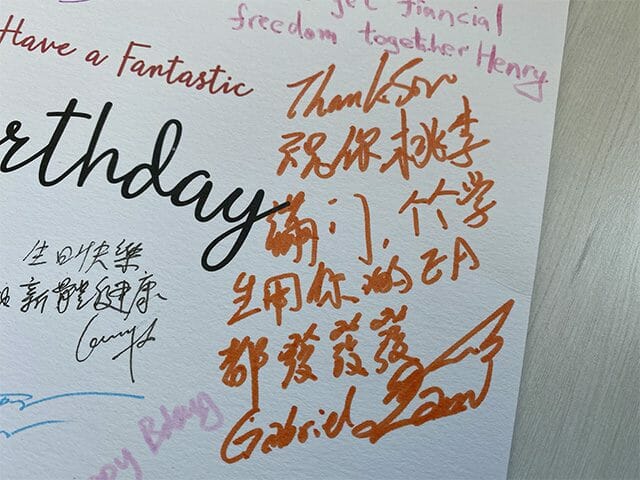 get fiancial
freedom together Henry
Have a Fantastic
rthday
祝你桃李
滿门，个个学
生用你的EA
都發發發
Gabriel
生日快樂
新體健康
ppy Bday